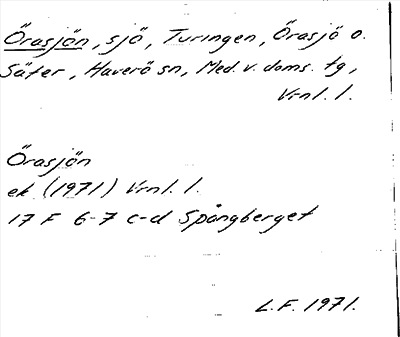 Örasjön, sjö, Turingen, Örasjö o.
Säter, Haverö sn, Med. v. doms. tg,
Vrnl. l.
Örasjön
ek. (1971) Vrnl. l.
17 F 6-7 c-d Spångberget
L.F. 1971.